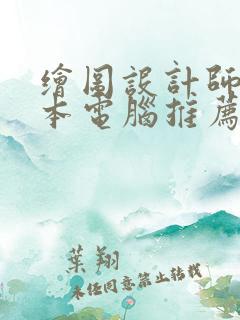 繪圖設計師
本電腦推薦
葉翔
未經同意禁止轉載